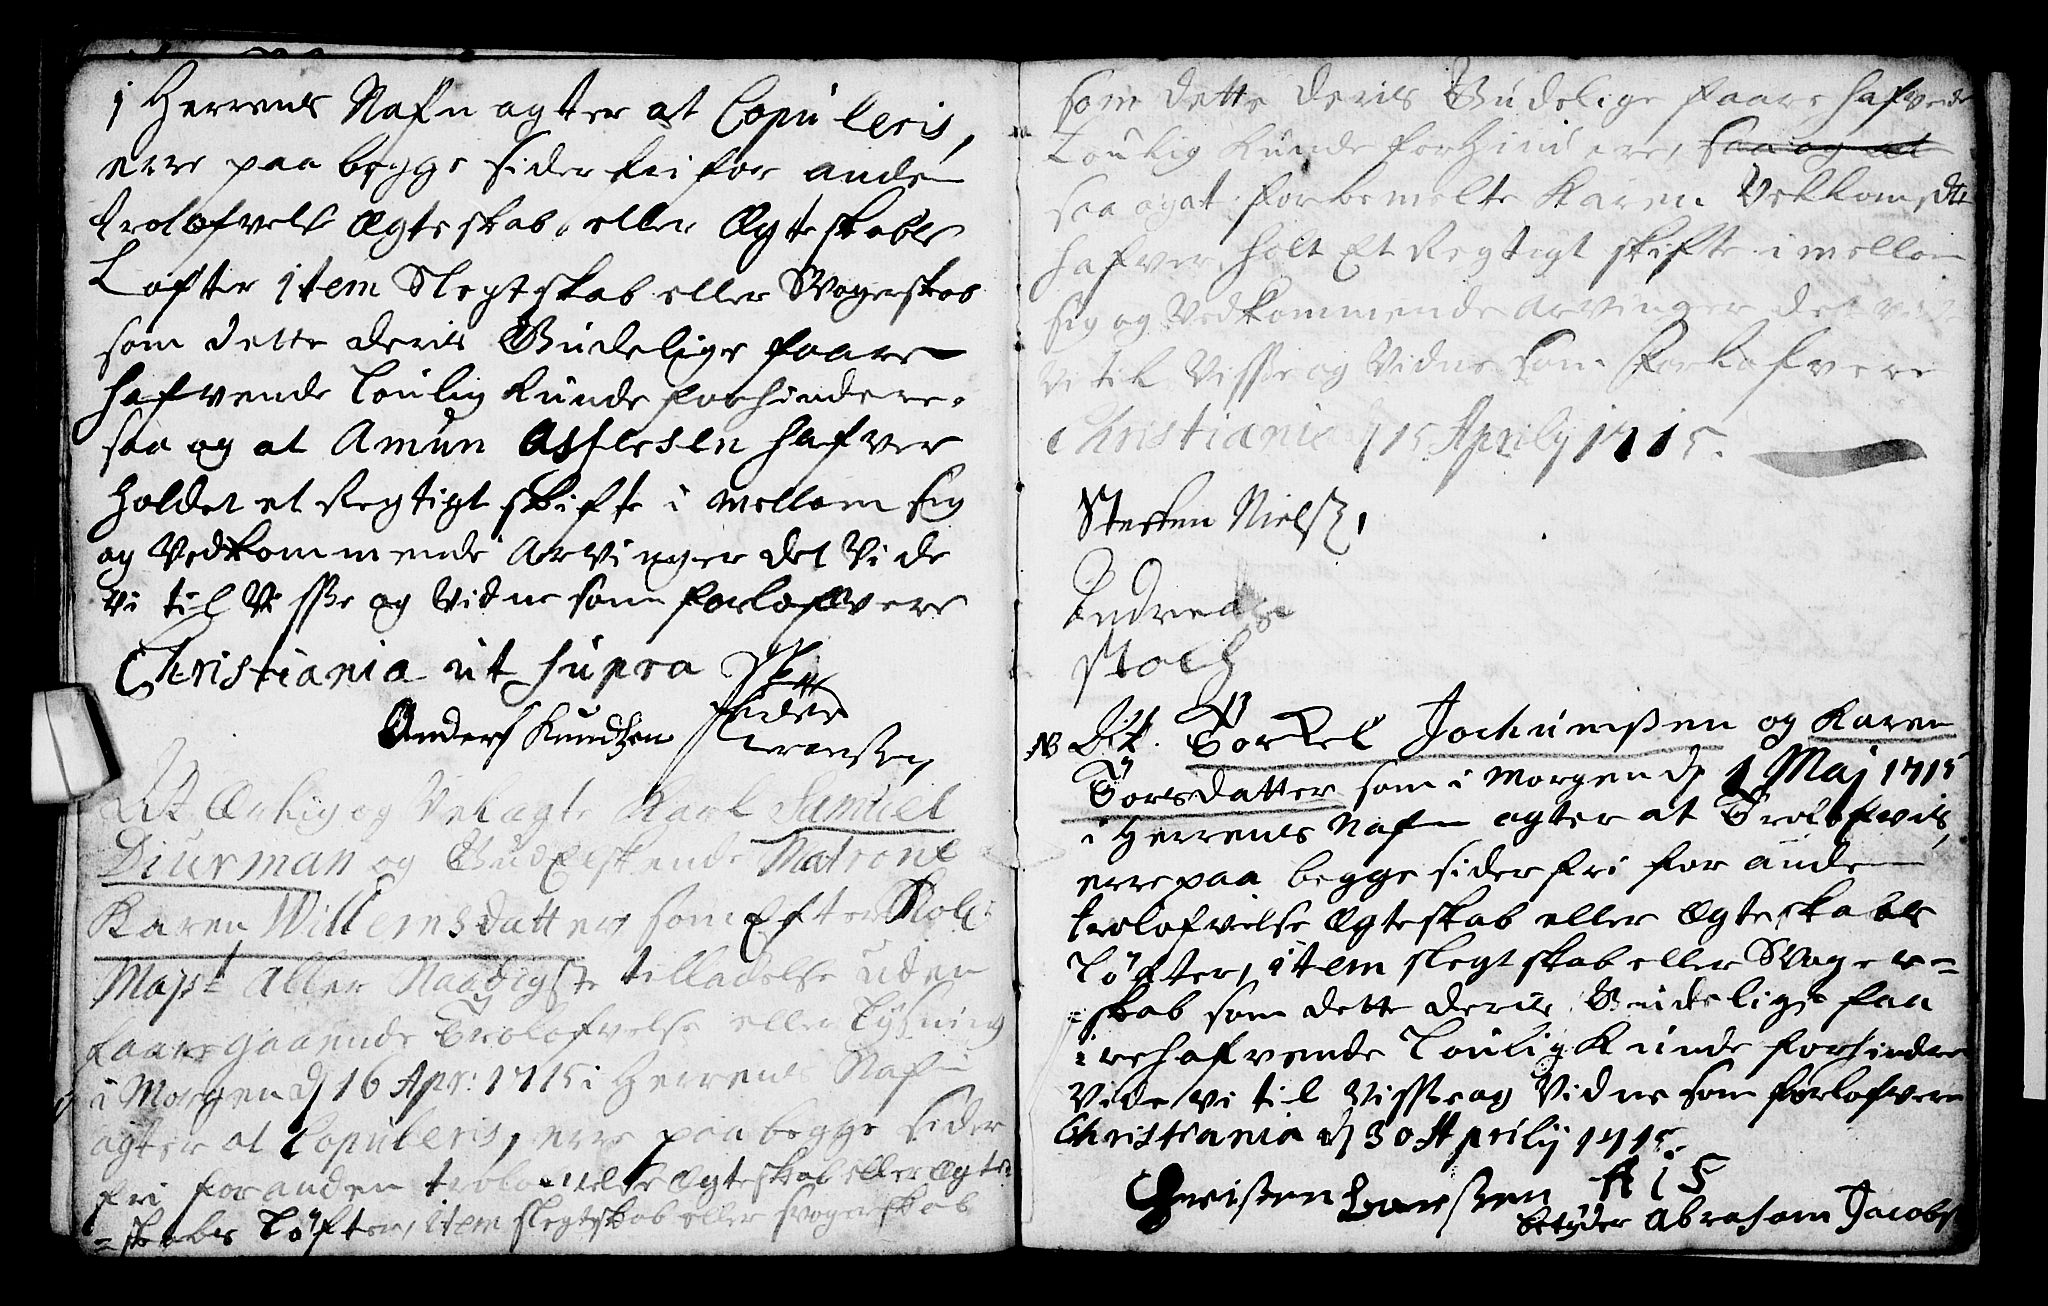 i Herrens Nafn agter at Copuleris,
erre paa begge sider fri for anden
trolofvelse Ægteskab eller Ægteskabs
Løfter item Slegtskab eller Svogerskab
som dette deris Gudelige faare
hafvende loulig kunde forhindere.
saa og at Amun Aslesen hafver
holdet et Regtigt skifte i mellom sig
og Vedkommende Arvinger det Vide
vi til Visse og Vidne som forlofvere
Christiania ut supra
Anders Knudtzen
Dit Ærlig og Velagte Karl Samuel
Diurman og Gudelskende Matrone
Karen Willemsdatter som Efter Kol:
Majst aller Naadigste tilladelse uden
faaregaaende Trolofvelse eller Lysning
i Morgen d 16 Apr: 1715 i Herrens Nafn
agter at Copuleris, erre paa begge sider
fri for anden trolofvelse Ægteskab eller Ægte=
=skabs Løfter, item slegtskab eller svogerskab
som dette deris Gudelige faare hafvende
Loulig kunde forhindre, saa og at
saa og at forbemelte Karen Vellomsdtr
hafver holt Et Regtigt skifte i mellom
sig og Vedkommende arvinger det vide
Vi til Visse og Vidne som Forlofvere
Christiania d 15 Aprily 1715.
Steffen Nielss
Andreas
Stoch
NB Dit. Torkel Jochumssen og Karen
Torsdatter som i Morgen d 1 Maj 1715
i Herrens Nafn agter at Trolofvis,
erre paa begge sider fri for anden
trolofvelse Ægteskab eller Ægteskabs
Løfter, item slegtskab eller Svoger=
=skab som dette deris Gudelige faa
=rehafvende Loulig Kunde forhindre
Vide vi til Visse og Vidne som forlofvere
Christiania d 30 Aprily 1715.
Christen Larssen A I S
betyder Abraham Jacobs